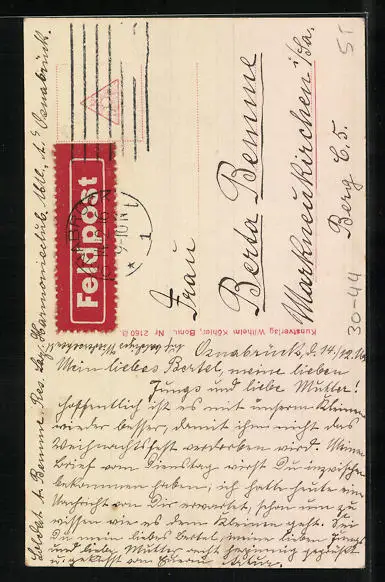 Feldpost
OSNABRÜCK
9-10 N
* 1
Frau
Berta Bemme
Markneukirchen i/Sa.
Berg C, 5.
Kunstverlag Wilhelm Köhler, Bonn. Nr. 2160
30-44
5T
Osnabrück, d. 14./12.
Mein liebes Bertel, meine lieben
Jungs und liebe Mutter!
Hoffentlich ist es mit unserm Kleinen
wieder besser, damit ihm nicht das
Weihnachtsfest verdorben wird. Meinen
Brief vom Dienstag wirst Du inzwischen
bekommen haben; ich hatte heute eine
Nachricht von Dir erwartet, schon um zu
wissen wie es dem Kleinen geht. Sei
Du mein liebes Bertel, meine lieben Jungs
und liebe Mutter recht herzinnig gegrüßt
u. geküsst von Eurem
Soldat A. Bemme Res. Laz. Harmonieclub, Osnabrück.